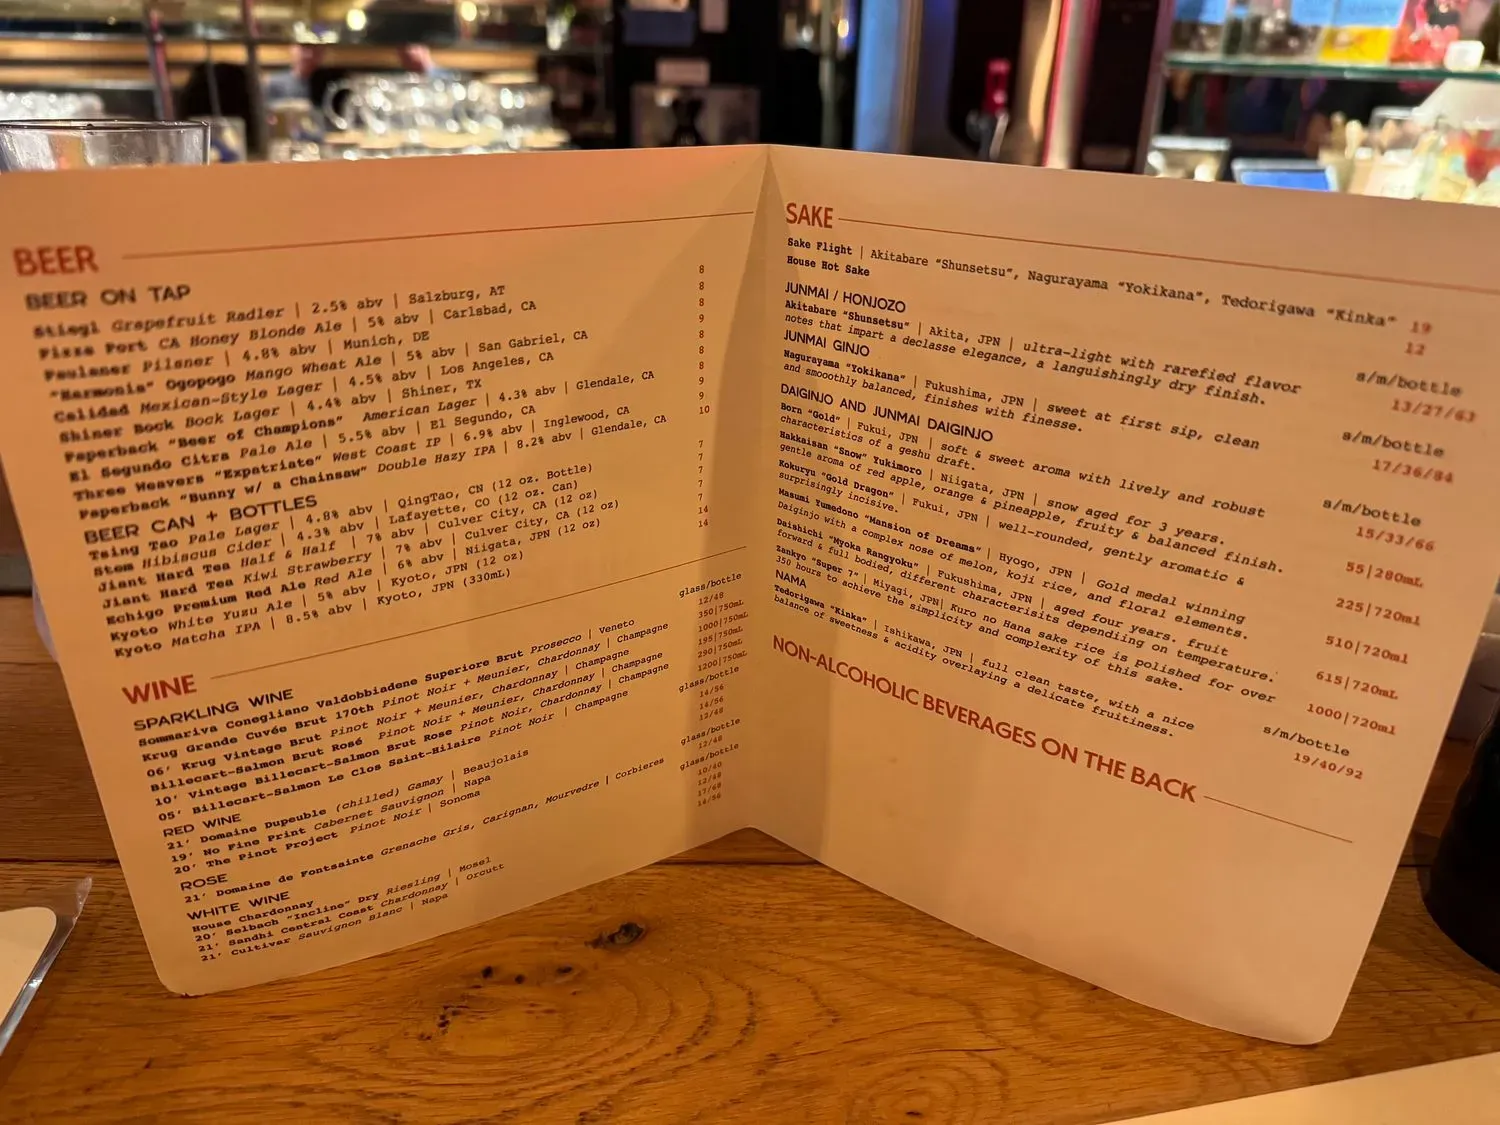 BEER
BEER ON TAP
Stiegl Grapefruit Radler | 2.5% abv | Salzburg, AT 8
Pizza Port CA Honey Blonde Ale | 5% abv | Carlsbad, CA 8
Paulaner Pilsner | 4.8% abv | Munich, DE 8
"Harmonia" Ogopogo Mango Wheat Ale | 5% abv | San Gabriel, CA 9
Calidad Mexican-Style Lager | 4.5% abv | Los Angeles, CA 8
Shiner Bock Bock Lager | 4.4% abv | Shiner, TX 8
Paperback "Beer of Champions" American Lager | 4.3% abv | Glendale, CA 8
El Segundo Citra Pale Ale | 5.5% abv | El Segundo, CA 9
Three Weavers "Expatriate" West Coast IP | 6.9% abv | Inglewood, CA 9
Paperback "Bunny w/ a Chainsaw" Double Hazy IPA | 8.2% abv | Glendale, CA 10
BEER CAN + BOTTLES
Tsing Tao Pale Lager | 4.8% abv | QingTao, CN (12 oz. Bottle) 7
Stem Hibiscus Cider | 4.3% abv | Lafayette, CO (12 oz. Can) 7
Jiant Hard Tea Half & Half | 7% abv | Culver City, CA (12 oz) 7
Jiant Hard Tea Kiwi Strawberry | 7% abv | Culver City, CA (12 oz) 7
Echigo Premium Red Ale Red Ale | 6% abv | Niigata, JPN (12 oz) 7
Kyoto White Yuzu Ale | 5% abv | Kyoto, JPN (12 oz) 14
Kyoto Matcha IPA | 8.5% abv | Kyoto, JPN (330mL) 14
WINE
SPARKLING WINE glass/bottle
Sommariva Conegliano Valdobbiadene Superiore Brut Prosecco | Veneto 12/48
Krug Grande Cuvée Brut 170th Pinot Noir + Meunier, Chardonnay | Champagne 350|750mL
06' Krug Vintage Brut Pinot Noir + Meunier, Chardonnay | Champagne 1000|750mL
Billecart-Salmon Brut Rosé Pinot Noir + Meunier, Chardonnay | Champagne 195|750mL
10' Vintage Billecart-Salmon Brut Rose Pinot Noir, Chardonnay | Champagne 290|750mL
05' Billecart-Salmon Le Clos Saint-Hilaire Pinot Noir | Champagne 1200|750mL
RED WINE glass/bottle
21' Domaine Dupeuble (chilled) Gamay | Beaujolais 14/56
19' No Fine Print Cabernet Sauvignon | Napa 14/56
20' The Pinot Project Pinot Noir | Sonoma 12/48
ROSE glass/bottle
21' Domaine de Fontsainte Grenache Gris, Carignan, Mourvedre | Corbieres 12/48
WHITE WINE glass/bottle
House Chardonnay 10/40
20' Selbach "Incline" Dry Riesling | Mosel 12/48
21' Sandhi Central Coast Chardonnay | Orcutt 17/68
21' Cultivar Sauvignon Blanc | Napa 14/56
SAKE
Sake Flight | Akitabare "Shunsetsu", Nagurayama "Yokikana", Tedorigawa "Kinka" 19
House Hot Sake 12
JUNMAI / HONJOZO s/m/bottle
Akitabare "Shunsetsu" | Akita, JPN | ultra-light with rarefied flavor 13/27/63
notes that impart a declasse elegance, a languishingly dry finish.
JUNMAI GINJO s/m/bottle
Nagurayama "Yokikana" | Fukushima, JPN | sweet at first sip, clean 17/36/84
and smooothly balanced, finishes with finesse.
DAIGINJO AND JUNMAI DAIGINJO s/m/bottle
Born "Gold" | Fukui, JPN | soft & sweet aroma with lively and robust 15/33/66
characteristics of a geshu draft.
Hakkaisan "Snow" Yukimoro | Niigata, JPN | snow aged for 3 years. 55|280mL
gentle aroma of red apple, orange & pineapple, fruity & balanced finish.
Kokuryu "Gold Dragon" | Fukui, JPN | well-rounded, gently aromatic & 225|720ml
surprisingly incisive.
Masumi Yumedono "Mansion of Dreams" | Hyogo, JPN | Gold medal winning 510|720ml
Daiginjo with a complex nose of melon, koji rice, and floral elements.
Daishichi "Myoka Rangyoku" | Fukushima, JPN | aged four years. fruit 615|720mL
forward & full bodied, different characterisits depending on temperature.
Zankyo "Super 7" | Miyagi, JPN| Kuro no Hana sake rice is polished for over 1000|720ml
350 hours to achieve the simplicity and complexity of this sake.
NAMA s/m/bottle
Tedorigawa "Kinka" | Ishikawa, JPN | full clean taste, with a nice 19/40/92
balance of sweetness & acidity overlaying a delicate fruitiness.
NON-ALCOHOLIC BEVERAGES ON THE BACK